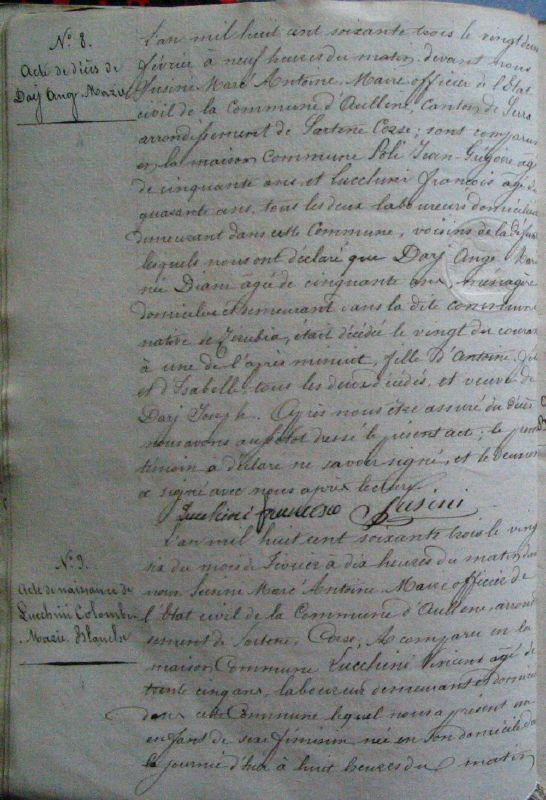 N.º 8.
Acte de décès de
Darj Ang. Marie
L'an mil huit cent soixante trois le vingt deux
février à neuf heures du matin, devant nous
Susini Marc Antoine Maire officier de l'Etat
civil de la Commune d'Aullene, Canton de Serra
arrondissement de Sartene Corse; sont comparus
en la maison Commune Poli Jean-Grégoire âgé
de cinquante ans, et Lucchini françois âgé de
quarante ans, tous les deux laboureurs domiciliés
demeurant dans cette Commune, voisins de la
lesquels nous ont déclaré que Darj Ange
née Diane âgée de cinquante ans, ménagère
domiciliée et demeurant dans la dite commune
native de Zerubia, était décédée le vingt du courant
à une de l'après minuit, fille d'Antoine
et d'Isabelle, tous les deux décédés, et veuve de
Darj Joseph. Après nous être assuré du décès
nous avons aussitot dressé le présent acte; le prem
témoin a déclaré ne savoir signé, et le deuxièm
a signé avec nous après lecture
Lucchini francesco Susini
N.º 9.
Acte de naissance de
Lucchini Colomba
Marie Blanche
L'an mil huit cent soixante trois le vingt
six du mois de Février à dix heures du matin
nous Susini Marc Antoine Maire officier de
l'Etat civil de la Commune d'Aullene, arron
dissement de Sartene, Corse, A comparu en la
maison Commune Lucchini Vincent âgé de
trente cinq ans, laboureur demeurant et domici
dans cette Commune lequel nous a présenté un
enfant de sexe féminin née en son domicile
la journée d'hui à huit heures du matin